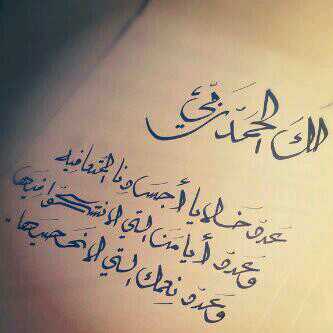 لك الحمد ربّي
عدد خلايا أجسادنا المتعافيه
وعدد أيامنا التي لانشكوا فيها
وعدد نعمك التي لانحصيها.